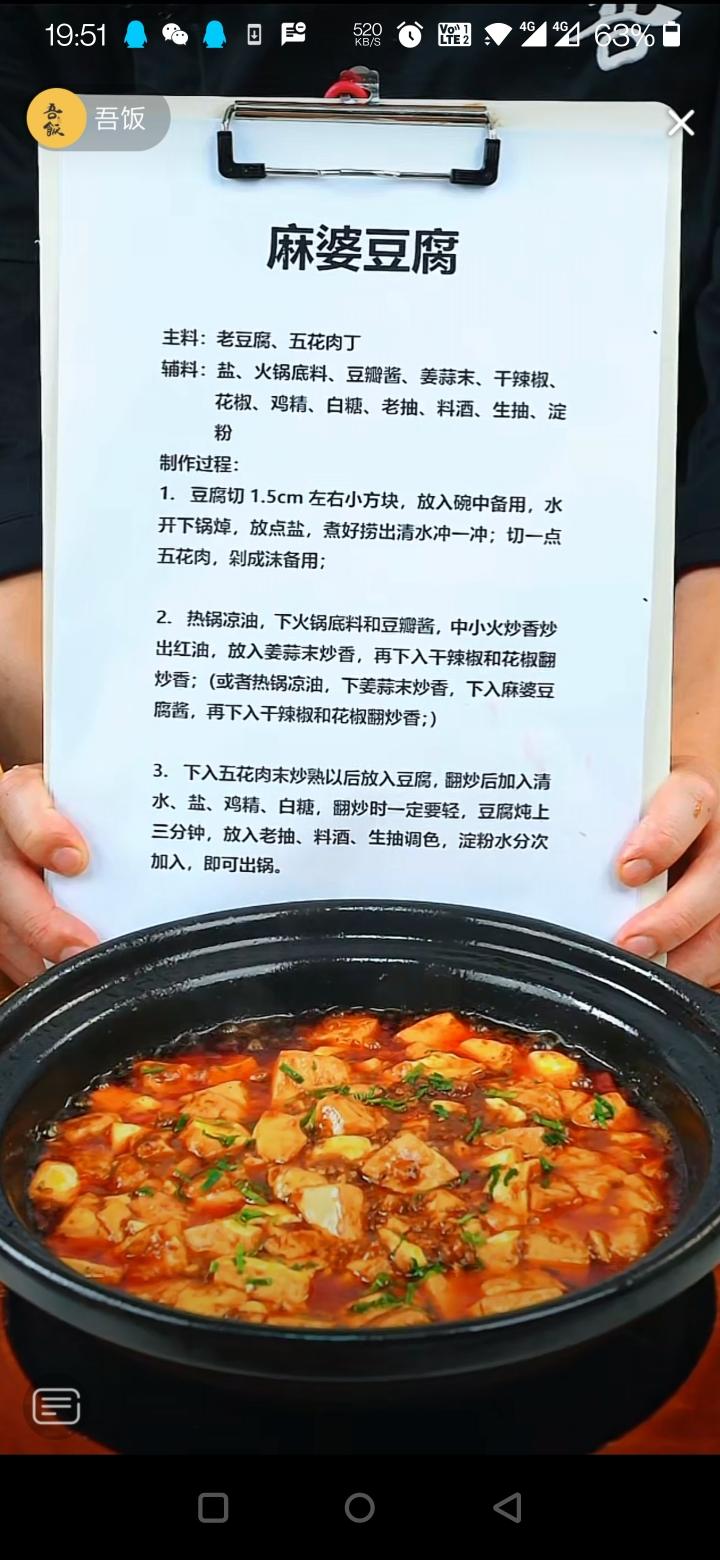 19:51
520
KB/S
Vo 1
LTE 2
4G
4G
63%
吾饭
吾饭
麻婆豆腐
主料：老豆腐、五花肉丁
辅料：盐、火锅底料、豆瓣酱、姜蒜末、干辣椒、
花椒、鸡精、白糖、老抽、料酒、生抽、淀
粉
制作过程：
1. 豆腐切 1.5cm 左右小方块，放入碗中备用，水
开下锅焯，放点盐，煮好捞出清水冲一冲；切一点
五花肉，剁成沫备用；
2. 热锅凉油，下火锅底料和豆瓣酱，中小火炒香炒
出红油，放入姜蒜末炒香，再下入干辣椒和花椒翻
炒香；(或者热锅凉油，下姜蒜末炒香，下入麻婆豆
腐酱，再下入干辣椒和花椒翻炒香；)
3. 下入五花肉末炒熟以后放入豆腐，翻炒后加入清
水、盐、鸡精、白糖，翻炒时一定要轻，豆腐炖上
三分钟，放入老抽、料酒、生抽调色，淀粉水分次
加入，即可出锅。